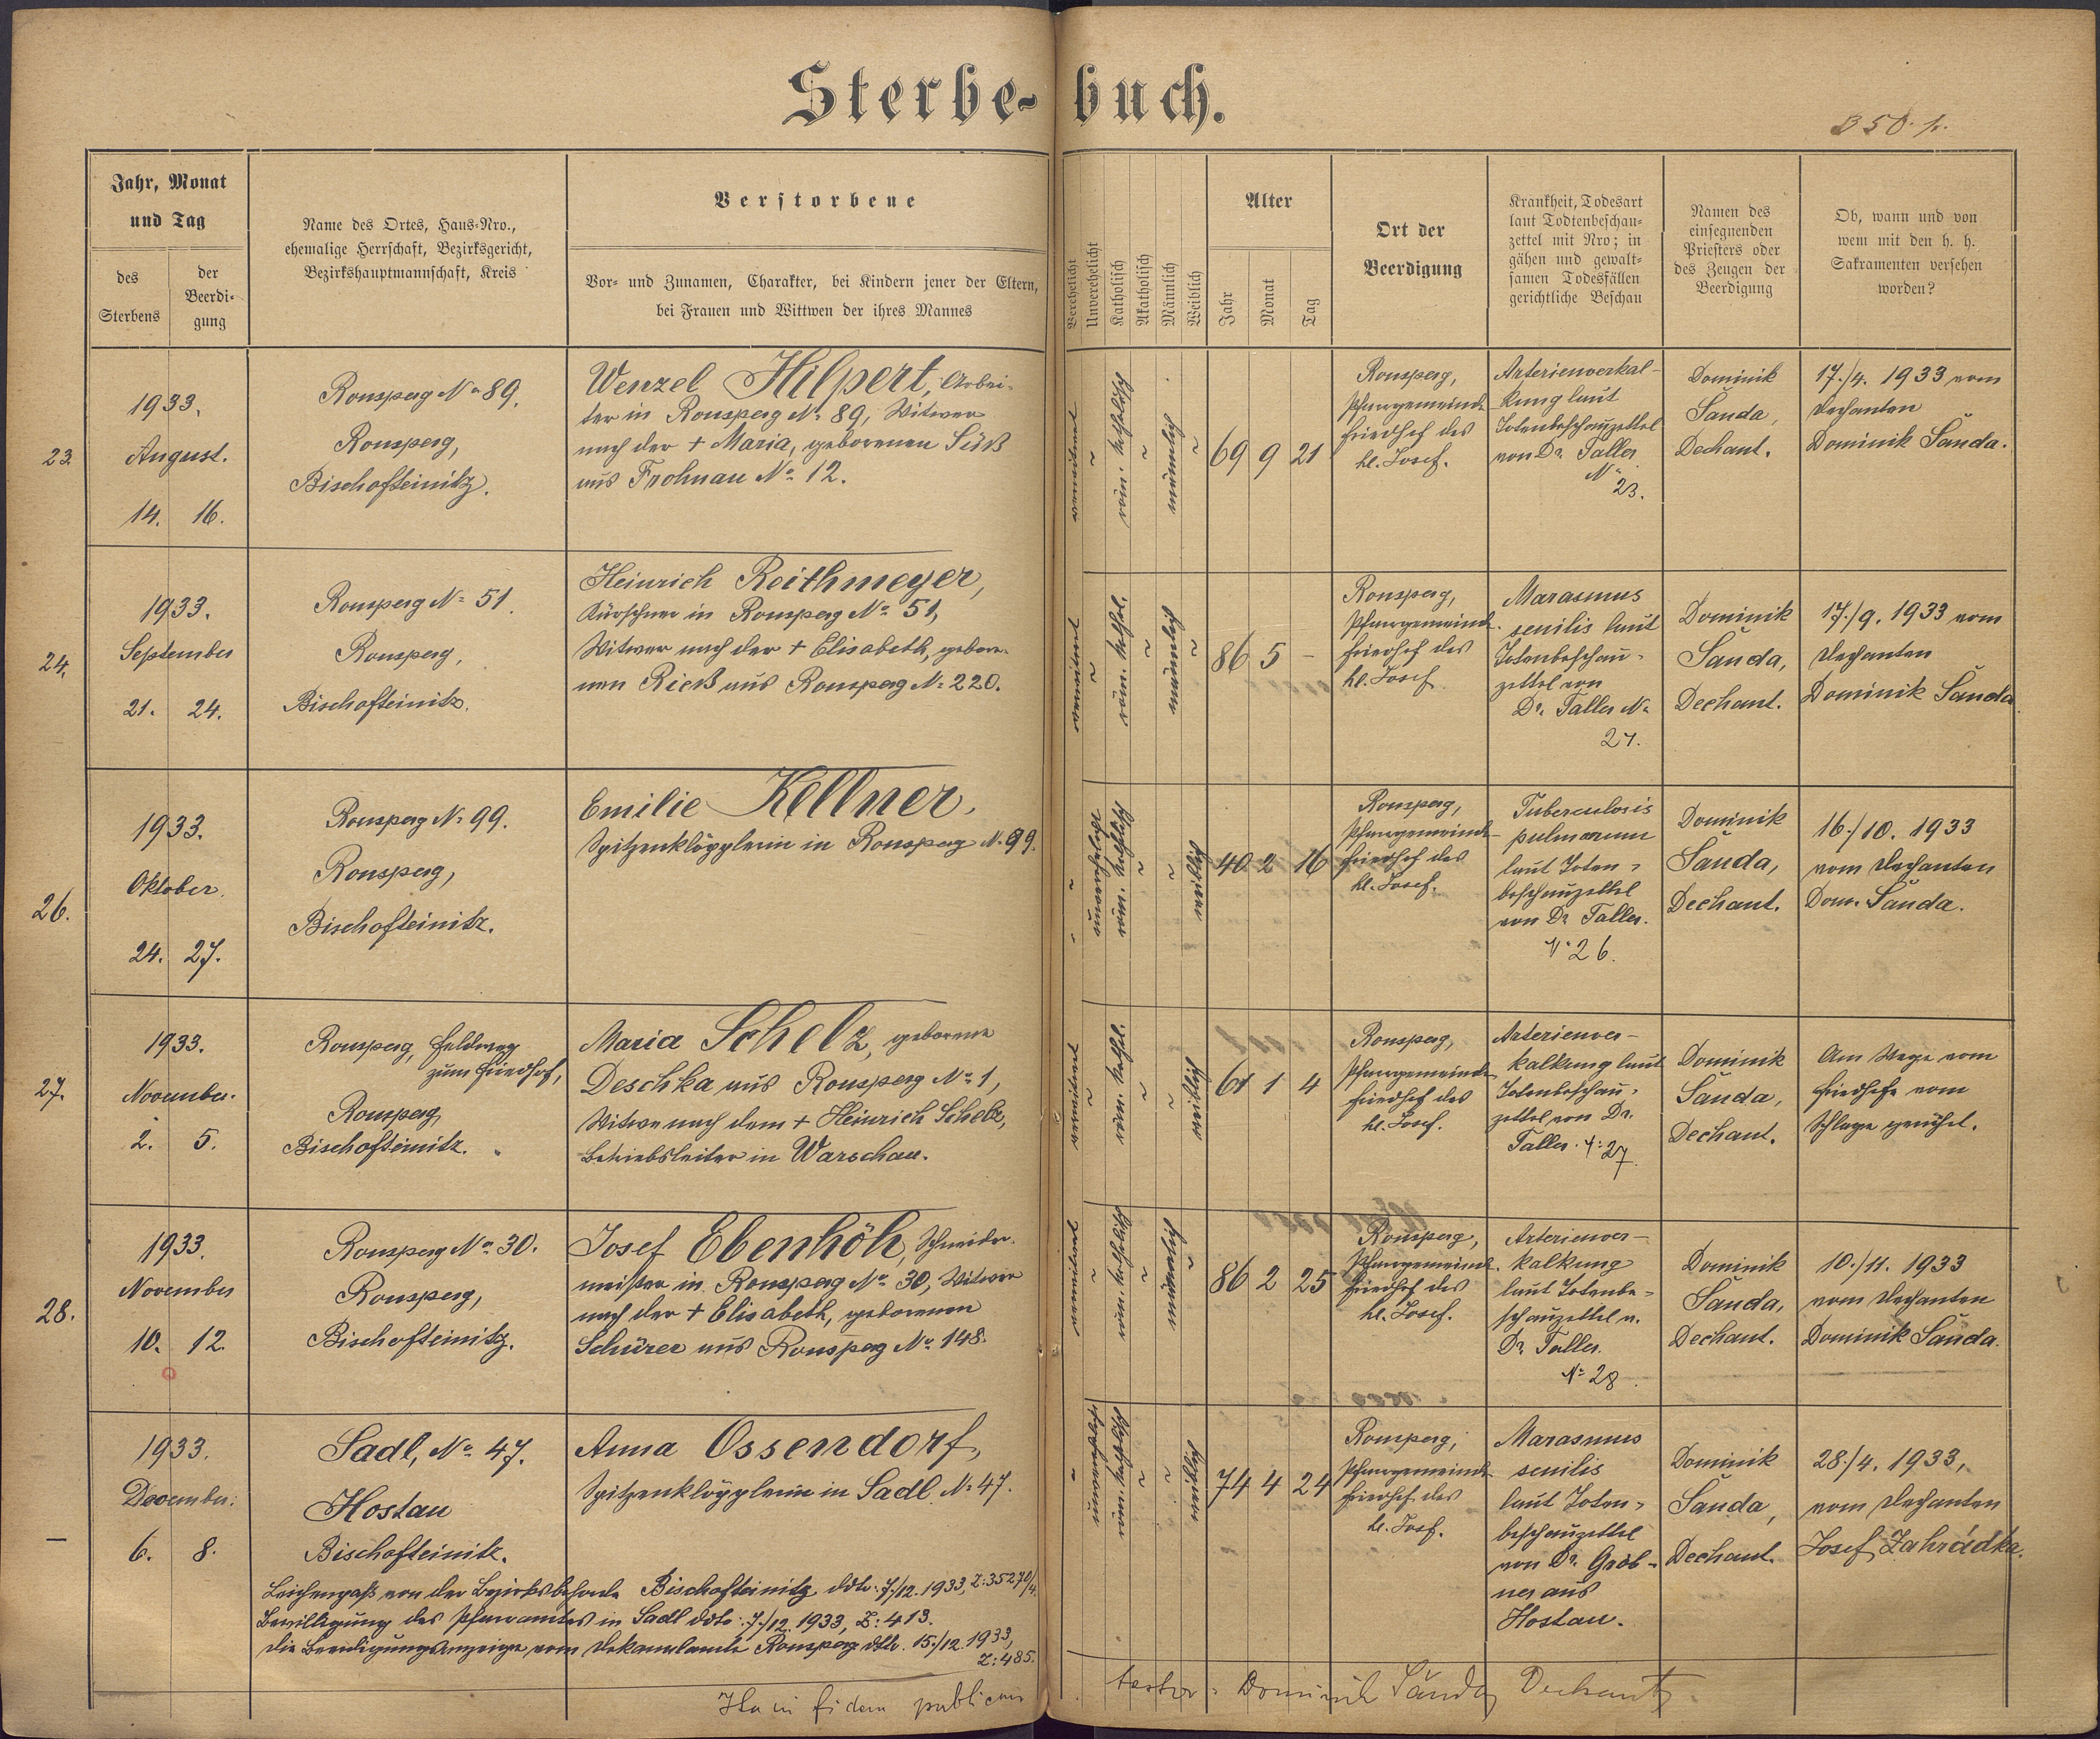 Sterbe-buch.
350. p.
Jahr, Monat
und Tag
des
Sterbens
der
Beerdi-
gung
Name des Ortes, Haus-Nro.,
ehemalige Herrschaft, Bezirksgericht,
Bezirkshauptmannschaft, Kreis
Verstorbene
Vor- und Zunamen, Charakter, bei Kindern jener der Eltern,
bei Frauen und Wittwen der ihres Mannes
Verehelicht
Unverehelicht
Katholisch
Akatholisch
Männlich
Weiblich
Alter
Jahr
Monat
Tag
Ort der
Beerdigung
Krankheit, Todesart
laut Todtenbeschau-
zettel mit Nro; in
gähen und gewalt-
samen Todesfällen
gerichtliche Beschau
Namen des
einsegnenden
Priesters oder
des Zeugen der
Beerdigung
Ob, wann und von
wem mit den h. h.
Sakramenten versehen
worden?
23.
1933.
August.
14. 16.
Ronsperg No 89.
Ronsperg,
Bischofteinitz.
Wenzel Hilpert, Arbei-
ter in Ronsperg No 89, Witwer
nach der + Maria, geborenen Süß
aus Frohnau No 12.
verwitwet
röm. katholisch
männlich
69 9 21
Ronsperg,
Pfarrgemeinde-
friedhof des
hl. Josef.
Arterienverkal-
kung laut
Totenbeschauzettel
von Dr. Taller
No
23.
Dominik
Šanda,
Dechant.
17./4. 1933 vom
Dechanten
Dominik Šanda.
24.
1933.
September
21. 24.
Ronsperg No 51.
Ronsperg,
Bischofteinitz.
Heinrich Reithmeyer,
Kürschner in Ronsperg No 51,
Witwer nach der + Elisabeth, gebore-
nen Rieß aus Ronsperg No 220.
verwitwet
röm. kathol.
männlich
86 5 -
Ronsperg,
Pfarrgemeinde-
friedhof des
hl. Josef
Marasmus
senilis laut
Totenbeschau-
zettel von
Dr. Taller No
24.
Dominik
Šanda,
Dechant.
17./9. 1933 vom
Dechanten
Dominik Šanda
26.
1933.
Oktober.
24. 27.
Ronsperg No 99.
Ronsperg,
Bischofteinitz.
Emilie Kellner,
Spitzenklöpplerin in Ronsperg No 99.
unverehelicht
röm. katholisch
weiblich
40 2 16
Ronsperg,
Pfarrgemeinde-
friedhof des
hl. Josef.
Tuberculosis
pulmonum
laut Toten-
beschauzettel
von Dr. Taller.
No 26.
Dominik
Šanda,
Dechant.
16./10. 1933
vom Dechanten
Dom. Šanda.
27.
1933.
November.
2. 5.
Ronsperg, Feldweg
zum Friedhof,
Ronsperg,
Bischofteinitz.
Maria Schelz, geborene
Deschka aus Ronsperg No 1,
Witwe nach dem + Heinrich Schelz,
Betriebsleiter in Warschau.
verwitwet
röm. kathol.
weiblich
61 1 4
Ronsperg,
Pfarrgemeinde-
friedhof des
hl. Josef.
Arterienver-
kalkung laut
Totenbeschau-
zettel von Dr.
Taller. No 27.
Dominik
Šanda,
Dechant.
Am Wege vom
Friedhofe vom
Schlage gerührt.
28.
1933.
November
10. 12.
Ronsperg No 30.
Ronsperg,
Bischofteinitz.
Josef Ebenhöh, Schneider-
meister in Ronsperg No 30, Witwer
nach der + Elisabeth, geborenen
Schürer aus Ronsperg No 148.
verwitwet
röm. katholisch
männlich
86 2 25
Ronsperg,
Pfarrgemeinde-
friedhof des
hl. Josef.
Arterienver-
kalkung
laut Totenbe-
schauzettel v.
Dr. Taller.
No 28.
Dominik
Šanda,
Dechant.
10./11. 1933
vom Dechanten
Dominik Šanda.
—
1933.
Dezember.
6. 8.
Sadl, No 47.
Hostau
Bischofteinitz.
Anna Ossendorf,
Spitzenklöpplerin in Sadl No 47.
unverehelicht
röm. katholisch
weiblich
74 4 24
Ronsperg,
Pfarrgemeinde-
friedhof des
hl. Josf.
Marasmus
senilis
laut Toten-
beschauzettel
von Dr. Gröb-
ner aus
Hostau.
Dominik
Šanda,
Dechant.
28./4. 1933,
vom Dechanten
Josef Zahrádka.
Leichenpaß von der Bezirksbehörde Bischofteinitz ddto: 7./12. 1933, Z: 35270/4.
Bewilligung des Pfarramtes in Sadl ddto: 7./12. 1933, Z: 413.
Die Beerdigungsanzeige vom Dekanalamte Ronsperg ddto. 15./12. 1933,
Z: 485.
Ita in fidem publicam testor: Dominik Šanda, Dechant